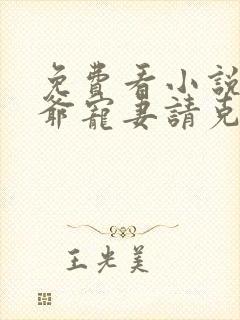 免費看小說
爺寵妻請克
王光美